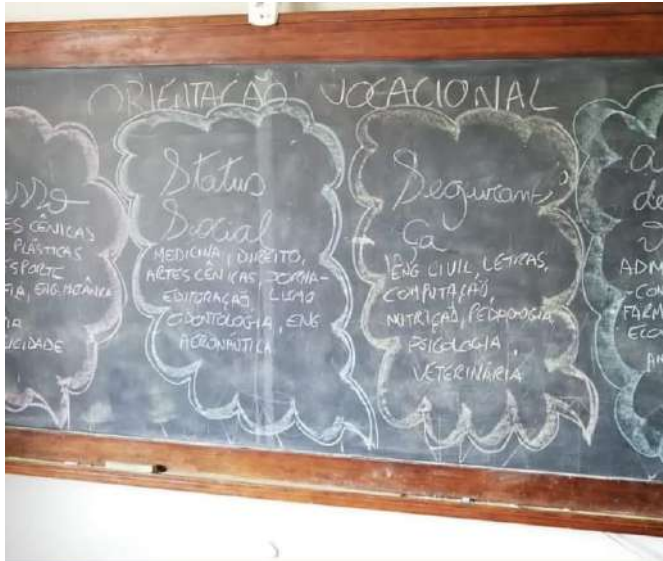 ORIENTAÇÃO VOCACIONAL
ES CÊNICAS
PLÁSTICAS
SPORTE
ENG. MECÂNICA
ICIDADE
Status
Social
MEDICINA, DIREITO,
ARTES CÊNICAS JORNA-
EDITORAÇÃO LISMO
ODONTOLOGIA, ENG
AERONÁUTICA
Seguran-
ça
ENG CIVIL, LETRAS,
COMPUTAÇÃO,
NUTRIÇÃO, PEDAGOGIA
PSICOLOGIA,
VETERINÁRIA
a
de
ADM
-COM
FARM
ECO